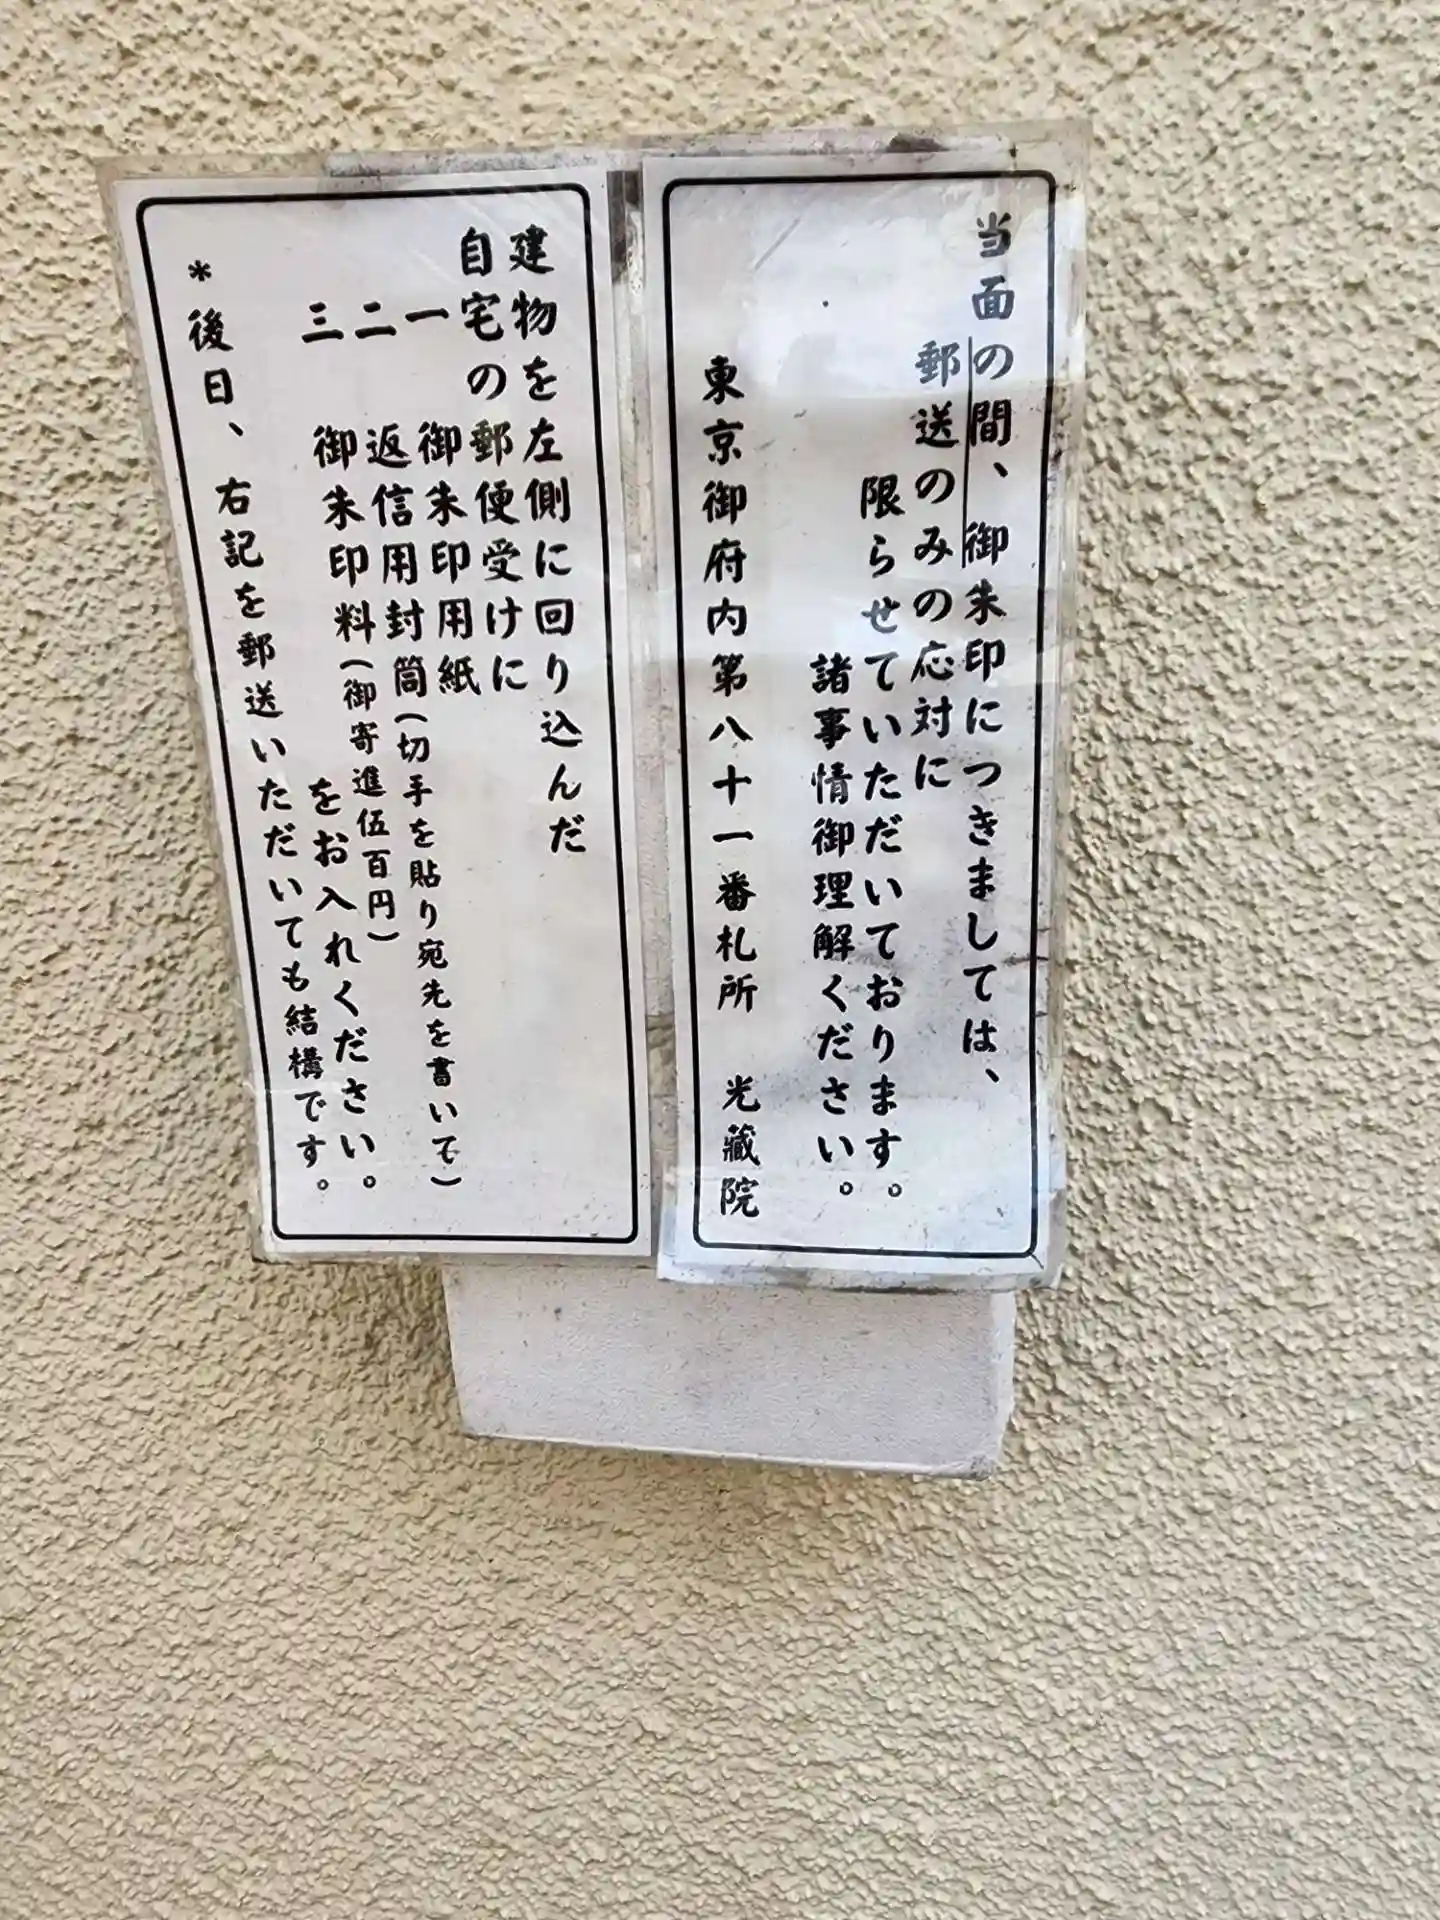 当面の間、御朱印につきましては、
郵送のみの応対に
限らせていただいております。
諸事情御理解ください。
東京御府内第八十一番札所 光藏院
建物を左側に回り込んだ
自宅の郵便受けに
一 御朱印用紙
二 返信用封筒(切手を貼り宛先を書いて)
三 御朱印料(御寄進伍百円)
をお入れください。
*後日、右記を郵送いただいても結構です。